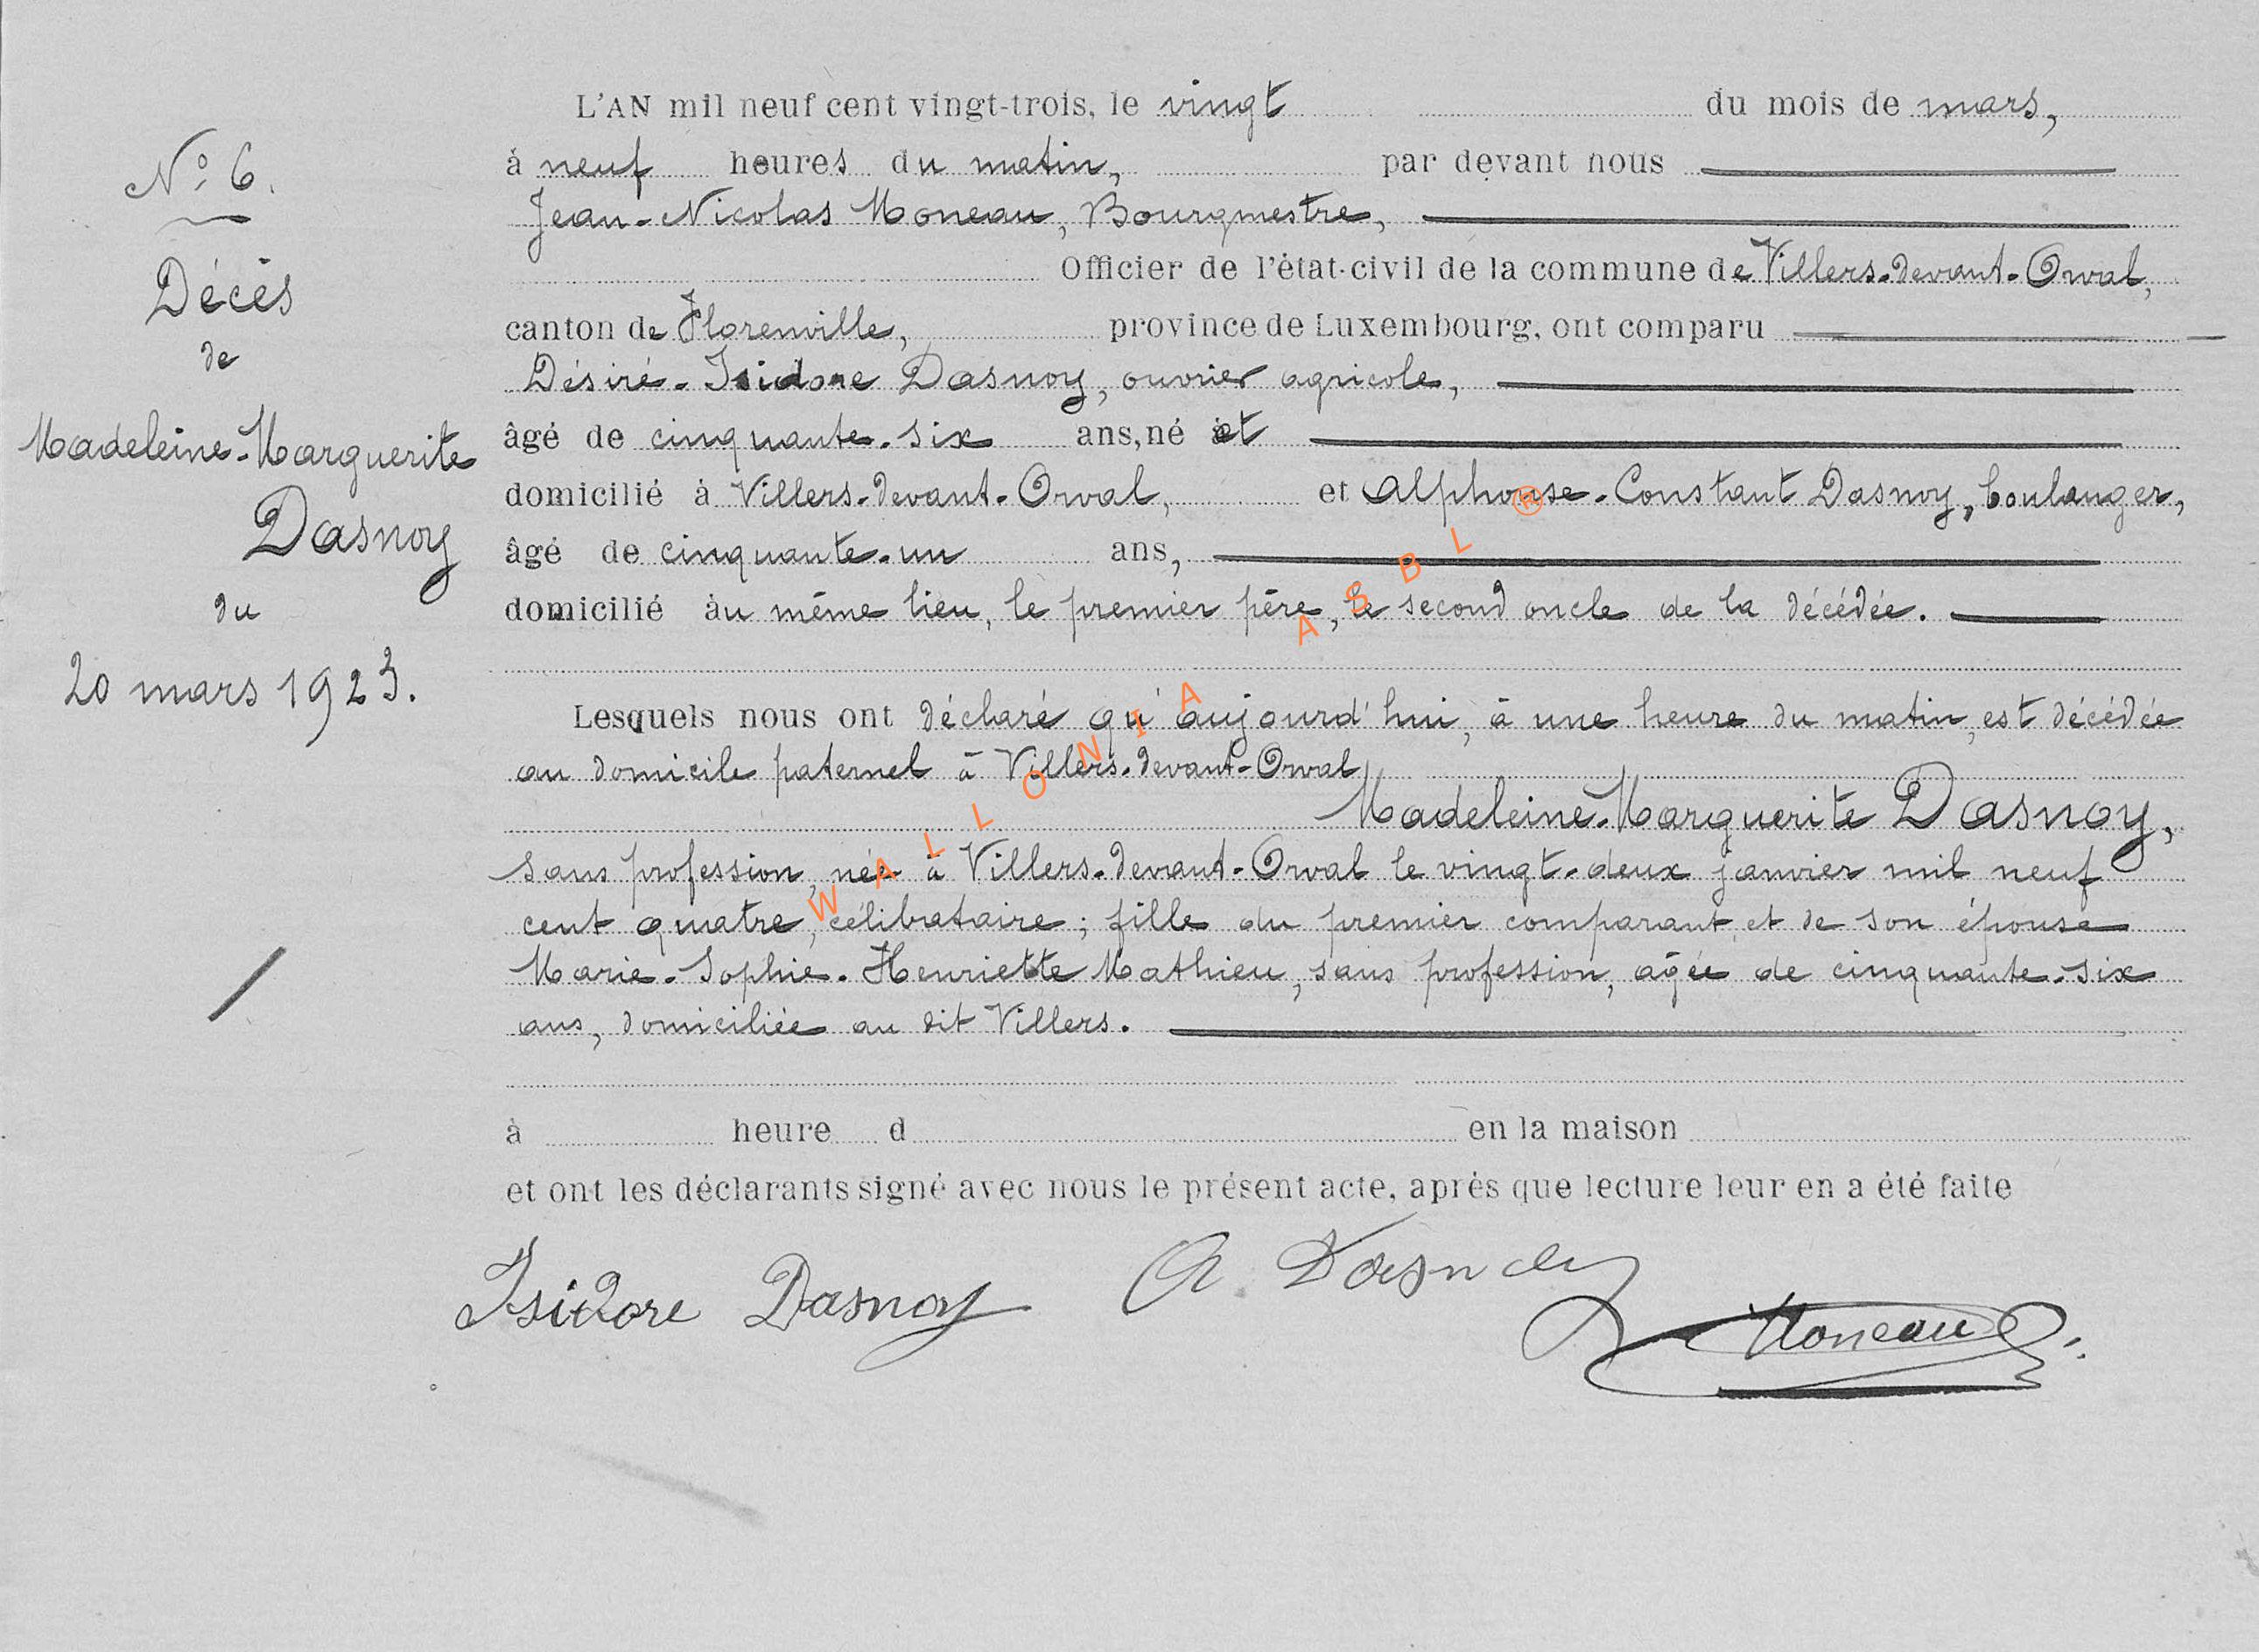 N° 6.
Décès
de
Madeleine-Marguerite
Dasnoy
du
20 mars 1923.
L'AN mil neuf cent vingt-trois, le vingt du mois de mars,
à neuf heures du matin, par devant nous
Jean-Nicolas Moneau, Bourgmestre,
Officier de l'état-civil de la commune de Villers-devant-Orval,
canton de Florenville, province de Luxembourg, ont comparu
Désiré-Isidore Dasnoy, ouvrier agricole,
âgé de cinquante-six ans, né et
domicilié à Villers-devant-Orval, et Alphonse-Constant Dasnoy, boulanger,
âgé de cinquante-un ans,
domicilié au même lieu, le premier père, le second oncle de la décédée.
Lesquels nous ont déclaré qu'aujourd'hui, à une heure du matin, est décédée
au domicile paternel à Villers-devant-Orval
Madeleine-Marguerite Dasnoy,
sans profession, née à Villers-devant-Orval le vingt-deux janvier mil neuf
cent quatre, célibataire; fille du premier comparant et de son épouse
Marie-Sophie-Henriette Mathieu, sans profession, agée de cinquante-six
ans, domiciliée au dit Villers.
à heure d en la maison
et ont les déclarants signé avec nous le présent acte, après que lecture leur en a été faite
Isidore Dasnoy A. Dasnoy
Moneau
WALLONIA ASBL ®